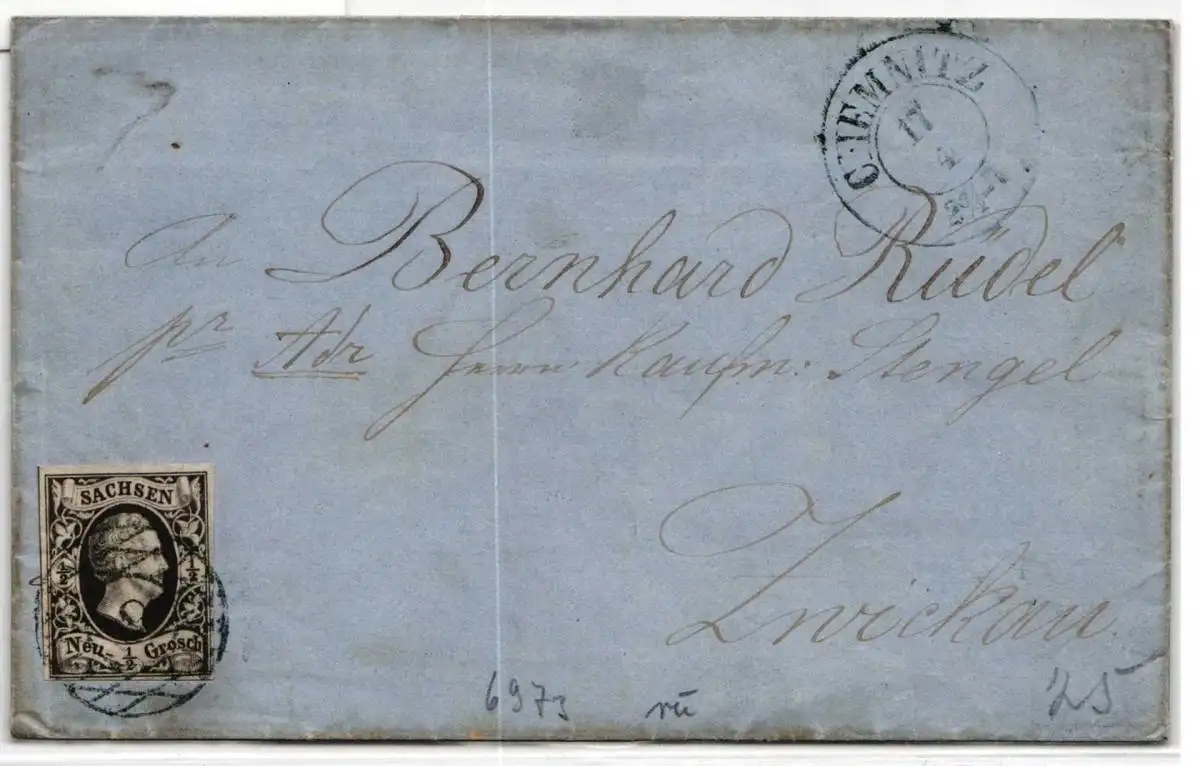 C:IEMNITZ
17
4
An
Bernhard Rüdel
pr Adr Herrn Kaufm: Stengel
Zwickau
SACHSEN
1/2 1/2
Neu- 1/2 Grosch
6973 rü 25